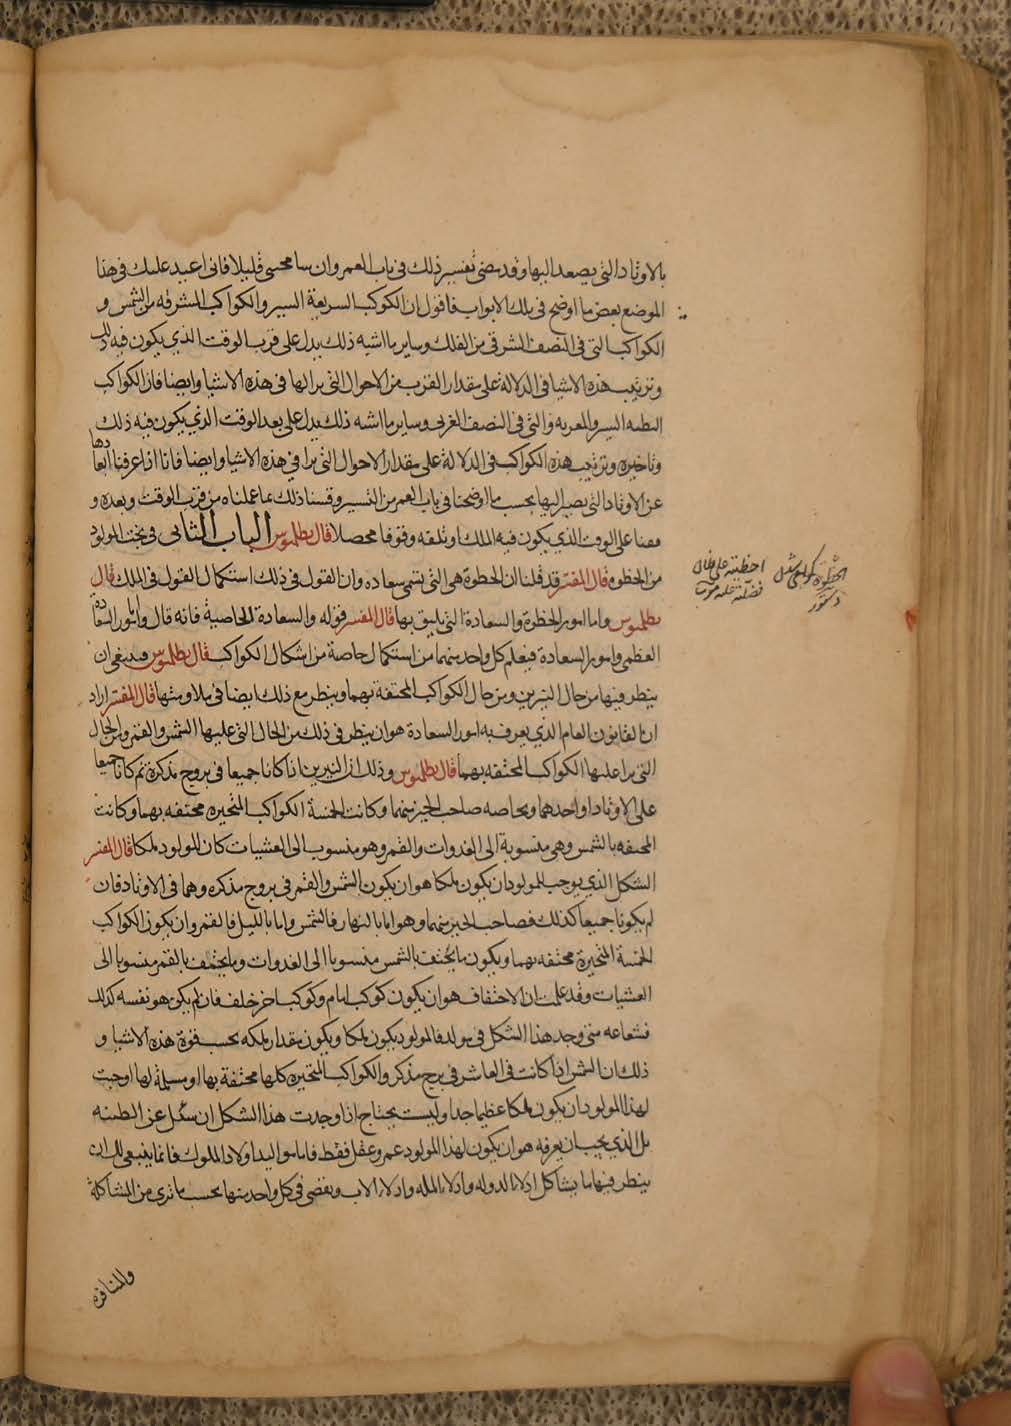 بالاوتاد التى يصعد اليها وقد مضى تفسير ذلك فى باب العمر وان سامحنى قليلا فانى اعيد عليك فى هذا
الموضع بعض ما اوضح فى تلك الابواب فاقول ان الكوكب السريعة السير والكواكب المشرقه من الشمس و
الكواكب التى فى النصف الشرقى من الفلك وساير ما اشبه ذلك يدل على قرب الوقت الذى يكون فيه ذلك
وترتيب هذه الاشيا فى الدلالة على مقدار القرب من الاحوال التى يرالها فى هذه الاشيا وايضا فان الكواكب
البطيه السير والمغربه والتى فى النصف الغربى وساير ما اشبه ذلك يدل على بعد الوقت الذى يكون فيه ذلك
وتاخيره وترتيب هذه الكواكب فى الدلالة على مقدار الاحوال التى يرا فى هذه الاشيا وايضا فانا اذا عرفنا ابعادها
عن الاوتاد التى يصير اليها بحسب ما اوضحنا فى باب العمر من التسيير وقسنا ذلك بما عملناه من قرب الوقت وبعده و
وقفنا على الوقت الذى يكون فيه الملك او تلفه وقوفا محصلا قال بطلميوس الباب الثانى فى بخت المولود
من الحظوه قال المفسر قد قلنا ان الحظوة هى التى تسمى سعاده وان القول فى ذلك استكمال القول فى الملك قال
بطلميوس واما امور الحظوة والسعادة التى يليق بها قال المفسر قوله والسعادة الخاصية فانه قال وامور السعادة
العظمى وامور السعادة فيعلم كل واحد منهما من استكمال خاصة من اشكال الكواكب قال بطلميوس فينبغى ان
ينظر فيها من حال النيرين ومن حال الكواكب المحتفة بهما وينظر مع ذلك ايضا فى ملاومتها قال المفسر اراد
ان القانون العام الذى يعرف به امور السعادة هو ان ينظر فى ذلك من الحال التى عليها الشمس والقمر والحال
التى يرا عليها الكواكب المحتفه بهما قال بطلميوس وذلك ان النيرين اذا كانا جميعا فى بروج مذكرة ثم كانا جميعا
على الاوتاد او احدهما وبخاصه صاحب الحيز منهما وكانت الخمسة الكواكب المتحيره محتفه بهما وكانت
المحتفه بالشمس وهى منسوبة الى الغدوات والقمر وهو منسوب الى العشيات كان المولود ملكا قال المفسر
الشكل الذى يوجب للمولود ان يكون ملكا هو ان يكون الشمس والقمر فى بروج مذكره وهما فى الاوتاد فان
لم يكونا جميعا كذلك فصاحب الحيز منهما وهو اما بالنهار فالشمس واما بالليل فالقمر وان يكون الكواكب
الخمسة المتحيرة محتفه بهما ويكون ما يحتف بالشمس منسوبا الى الغدوات وما يحتف بالقمر منسوبا الى
العشيات وقد علمت ان الاحتفاف هو ان يكون كوكب امام وكوكب اخر خلف فان لم يكن هو نفسه كذلك
فشعاعه متى وجد هذا الشكل فى مولد فالمولود يكون ملكا ويكون مقدار ملكه بحسب قوة هذه الاشيا و
ذلك ان الشمس اذا كانت فى العاشر فى برج مذكر والكواكب المتحيره كلها محتفة بها او مسيلة لها اوجبت
لهذا المولود ان يكون ملكا عظيما جدا وليست يحتاج اذا وجدت هذا الشكل ان سئل عن الطينه
بل الذى يجب ان يعرفه هو ان يكون لهذا المولود عمر وعقل فقط فاما مواليد اولاد الملوك فانما ينبغى لك ان
ينظر فيها ما يشاكل ادلا الدوله وادلا المله وادلا الاب ويقضى فى كل واحد منها بحسب ما ترى من المشاكلة
والمنافره
احظيته على فلان